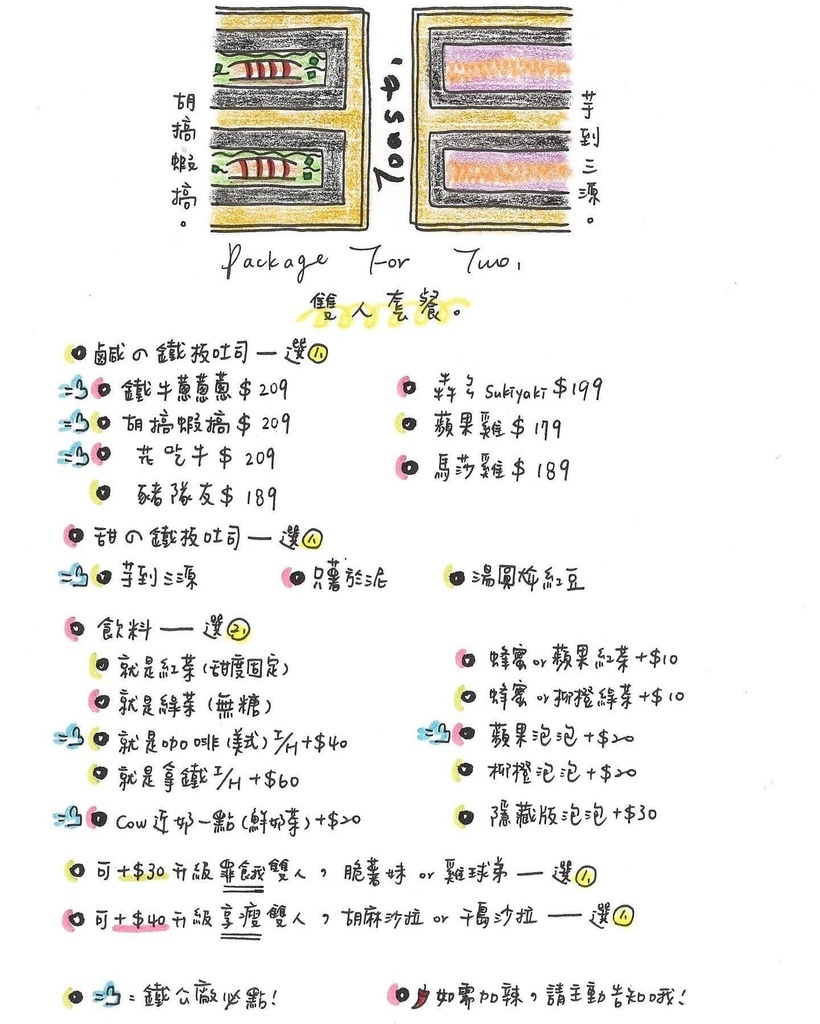 胡搞蝦搞。
Toast.
芋到三源。
Package For Two.
雙人套餐。
鹹の鐵板吐司一選1.
鐵牛蔥蔥蔥$209
犇ㄢ Sukiyaki $199
胡搞蝦搞$209
蘋果雞$179
花吃牛$209
馬莎雞$189
豬隊友$189
甜の鐵板吐司一選1.
芋到三源
只薯於泥
湯圓炸紅豆
飲料一選2.
就是紅茶(甜度固定)
蜂蜜or蘋果紅茶+$10
就是綠茶(無糖)
蜂蜜or柳橙綠茶+$10
就是咖啡(美式)I/H+$40
蘋果泡泡+$20
就是拿鐵I/H+$60
柳橙泡泡+$20
Cow近奶一點(鮮奶茶)+$20
隱藏版泡泡+$30
可+$30升級罪餓雙人,脆薯妹or雞球弟一選1.
可+$40升級享瘦雙人,胡麻沙拉or千島沙拉一選1.
=鐵公廠必點!
如需加辣,請主動告知哦!